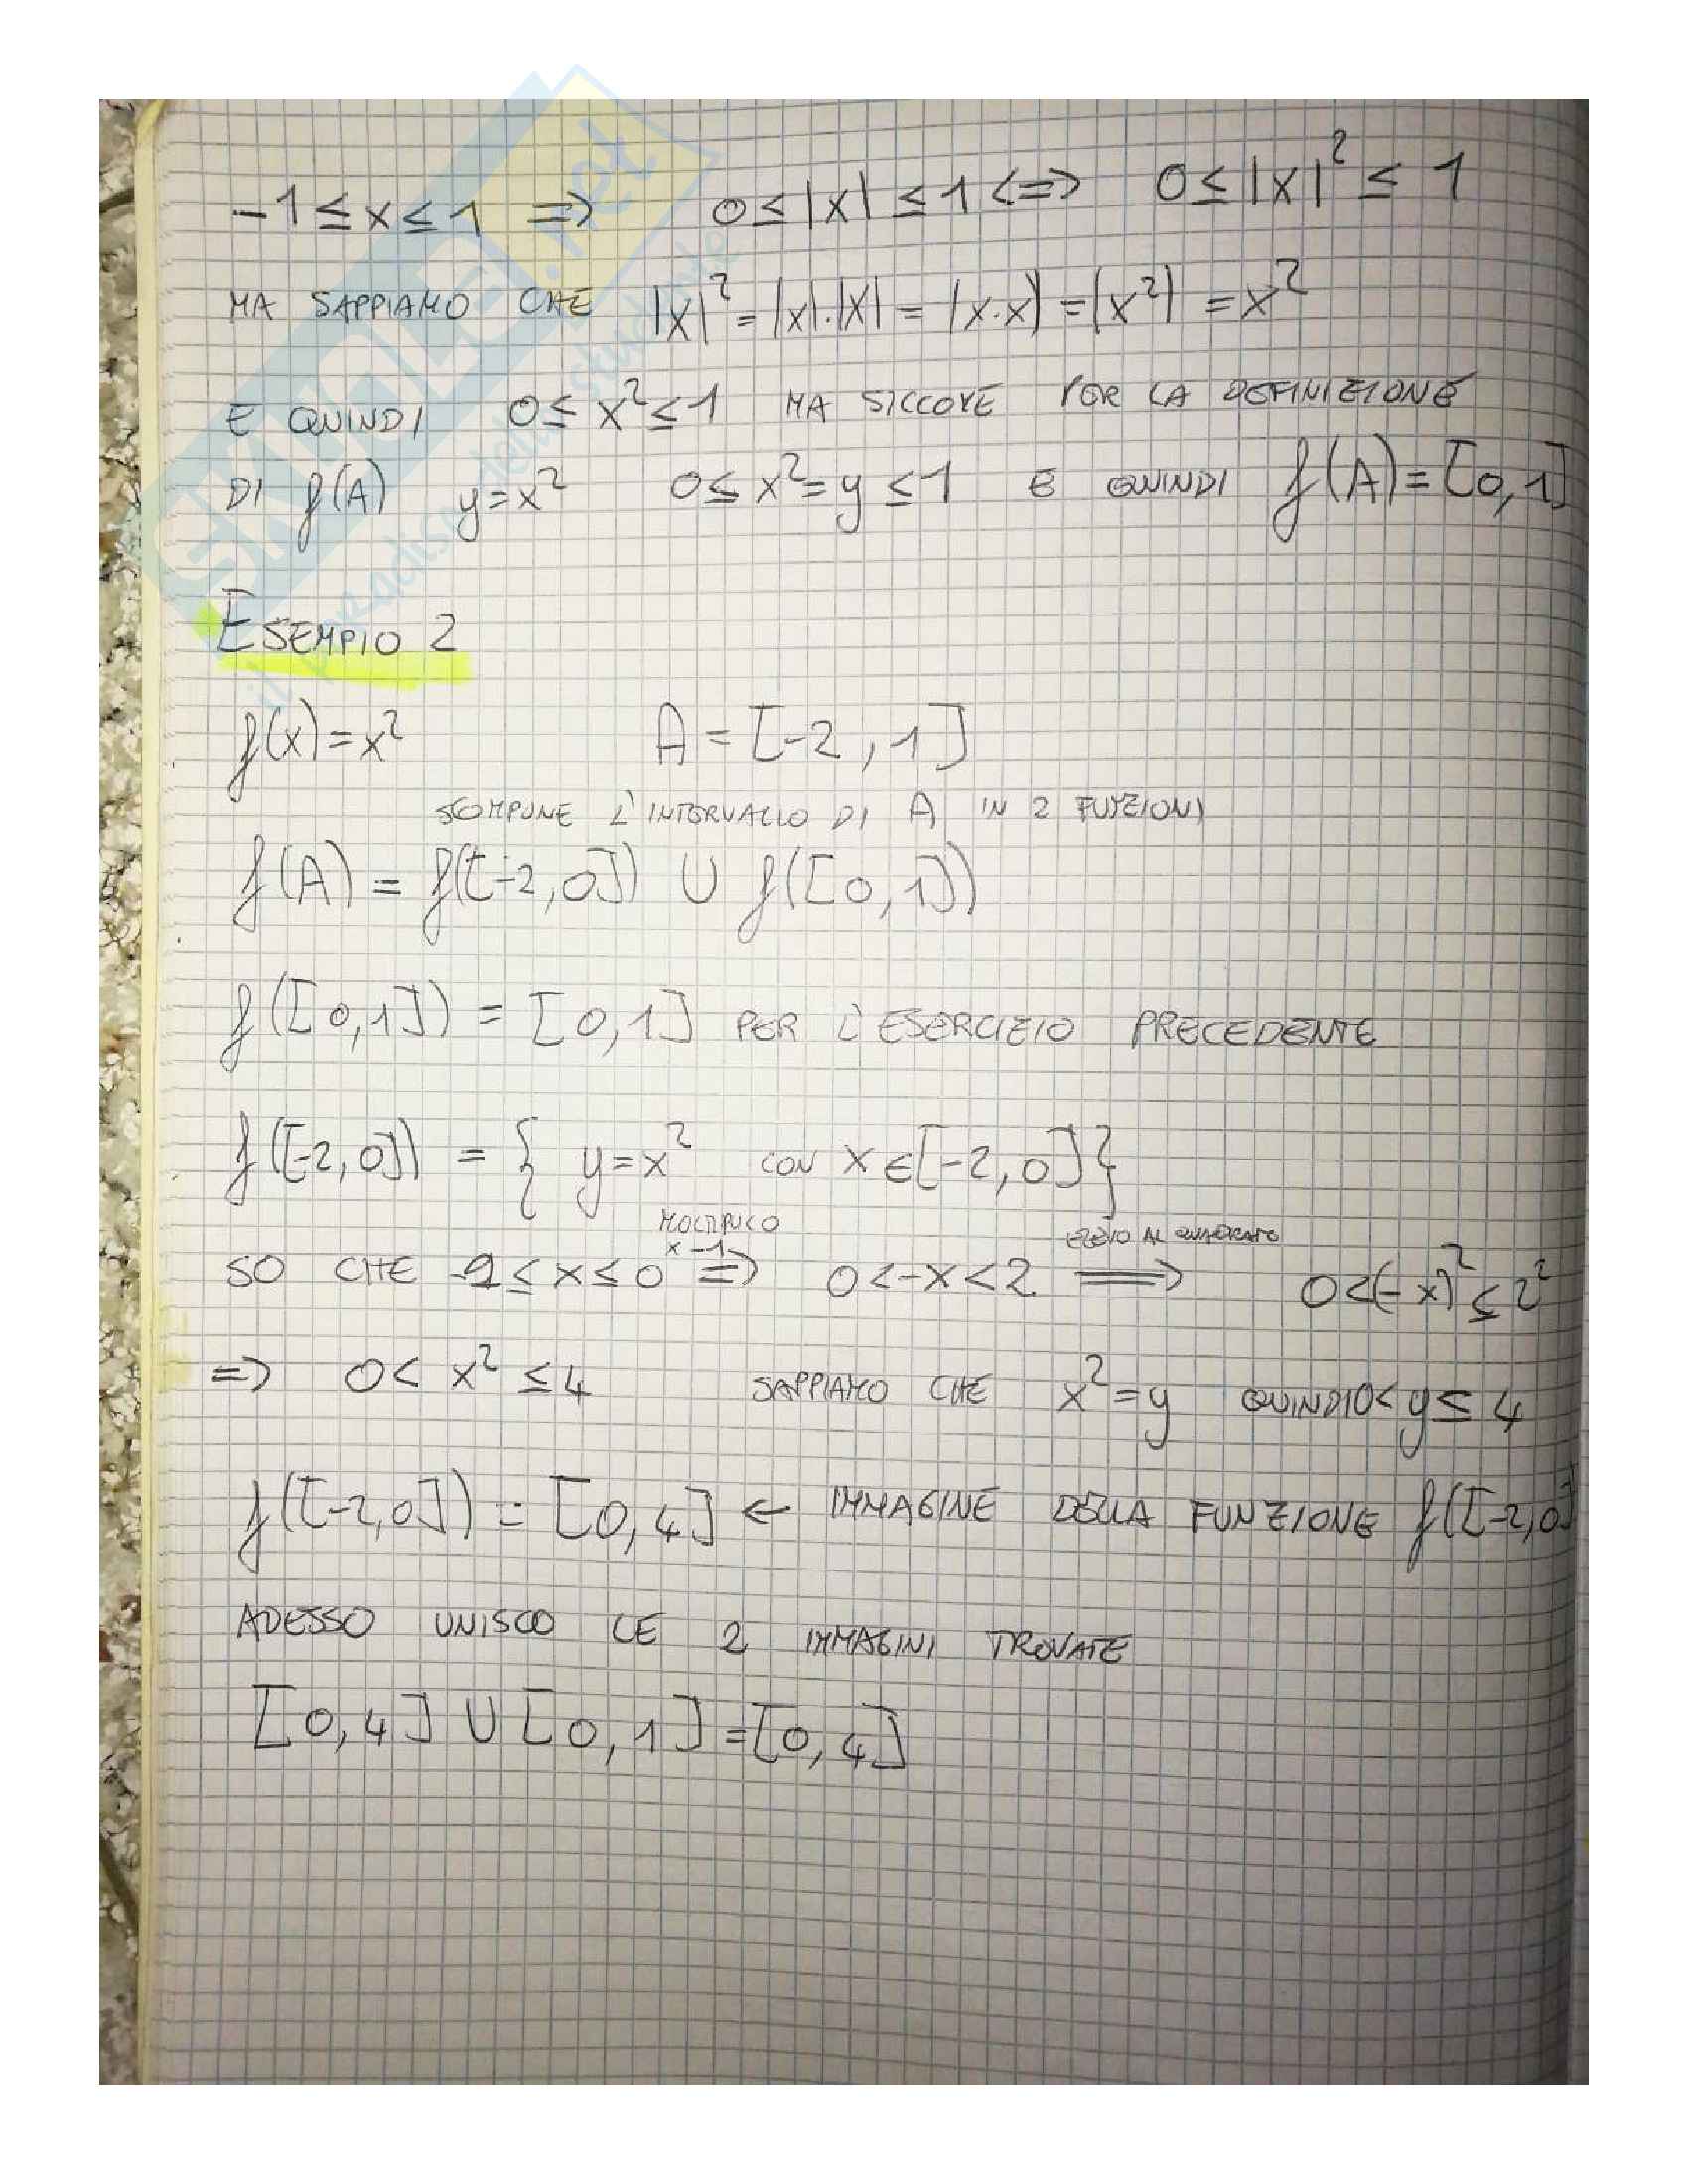 -1 ≤ x ≤ 1 => 0 ≤ |x| ≤ 1 <=> 0 ≤ |x|² ≤ 1
MA SAPPIAMO CHE |x|² = |x|·|x| = |x·x| = |x²| = x²
E QUINDI 0 ≤ x² ≤ 1 MA SICCOME PER LA DEFINIZIONE
DI f(A) y = x² 0 ≤ x² = y ≤ 1 E QUINDI f(A) = [0,1]
ESEMPIO 2
f(x) = x² A = [-2, 1]
SCOMPONE L'INTERVALLO DI A IN 2 FUNZIONI
f(A) = f([-2,0]) ∪ f([0,1])
f([0,1]) = [0,1] PER L'ESERCIZIO PRECEDENTE
f([-2,0]) = { y = x² CON x ∈ [-2,0] }
MOLTIPLICO x -1 ELEVO AL QUADRATO
SO CHE -2 ≤ x ≤ 0 => 0 < -x < 2 => 0 < (-x)² ≤ 2²
=> 0 < x² ≤ 4 SAPPIAMO CHE x² = y QUINDI 0 < y ≤ 4
f([-2,0]) = [0,4] ← IMMAGINE DELLA FUNZIONE f([-2,0]
ADESSO UNISCO LE 2 IMMAGINI TROVATE
[0,4] ∪ [0,1] = [0,4]
SKUOLA.net
il paradiso dello studente